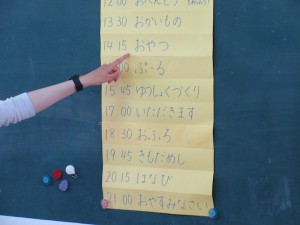 12 00 おべんとう
13 30 おかいもの
14 15 おやつ
10 ぷーる
15 45 ゆうしょくづくり
17 00 いただきます
18 30 おふろ
19 45 きもだめし
20 15 はなび
21 00 おやすみなさい